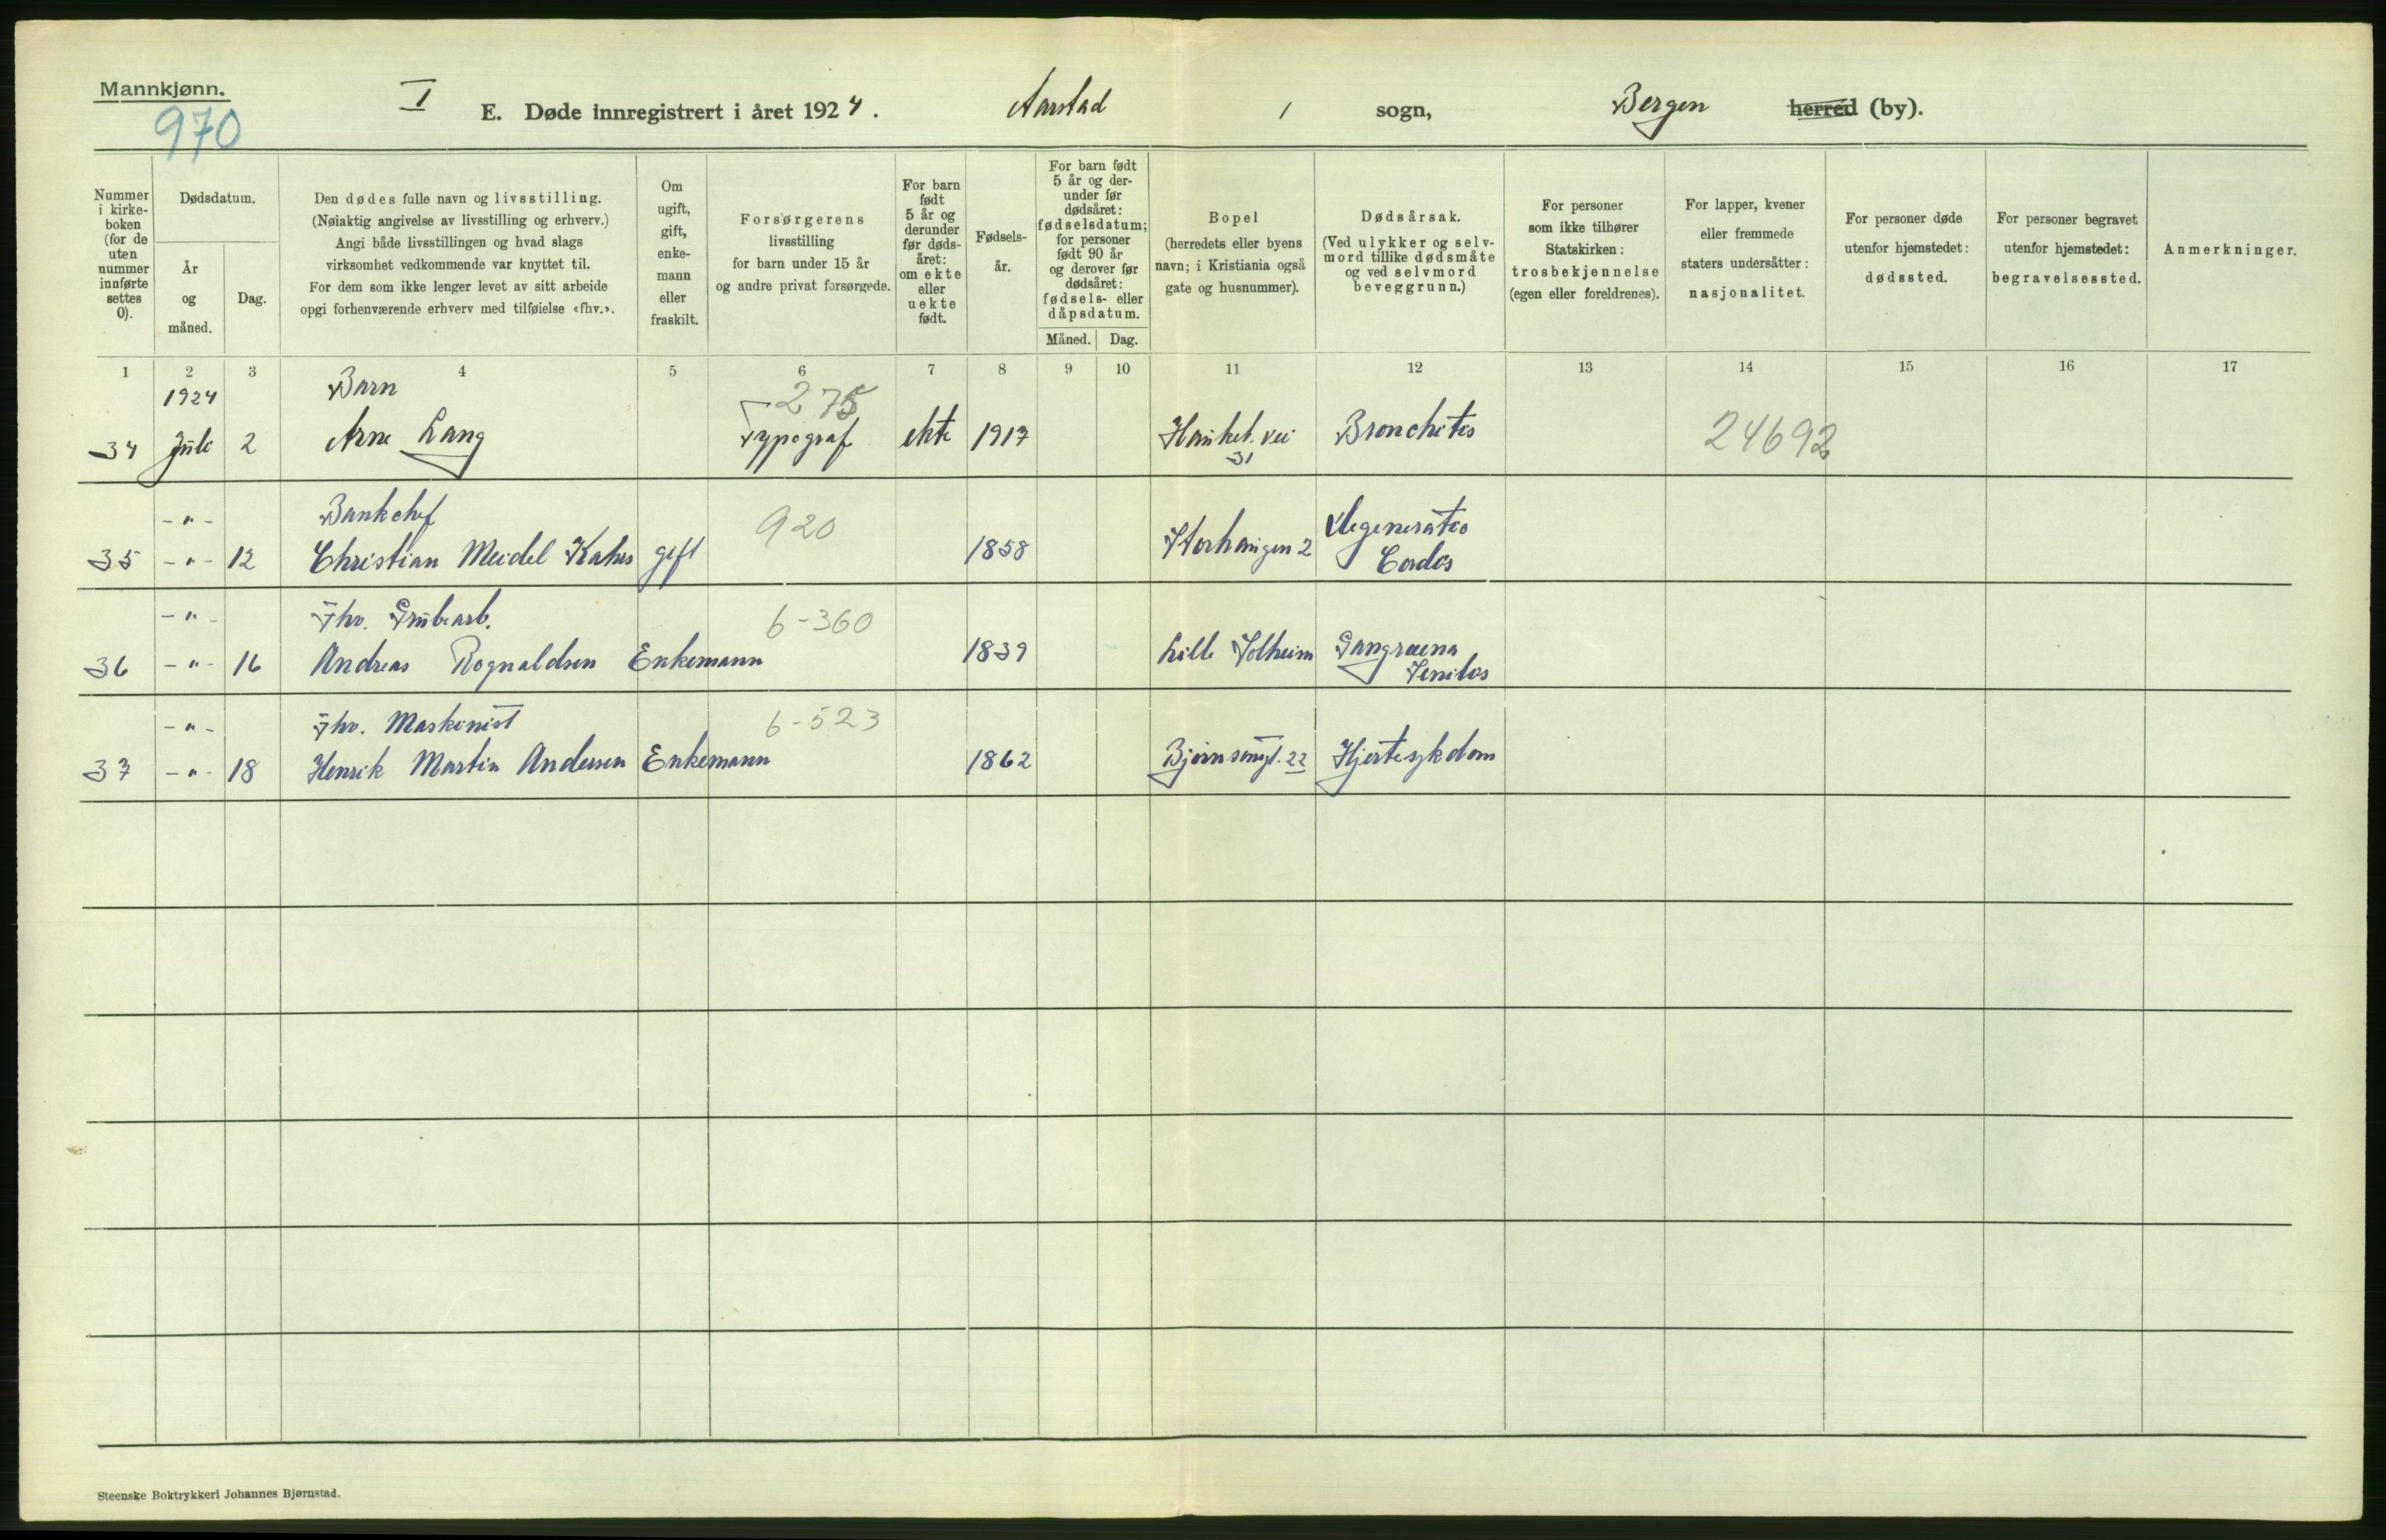 Mannkjønn.
970
I
E. Døde innregistrert i året 1924.
Aarstad
sogn,
Bergen
herred (by).
Nummer i kirke-boken (for de uten nummer innførte settes 0).
Dødsdatum.
År og måned.
Dag.
Den dødes fulle navn og livsstilling.
(Nøiaktig angivelse av livsstilling og erhverv.)
Angi både livsstillingen og hvad slags
virksomhet vedkommende var knyttet til.
For dem som ikke lenger levet av sitt arbeide
opgi forhenværende erhverv med tilføielse «fhv.».
Om ugift, gift, enke-mann eller fraskilt.
Forsørgerens
livsstilling
for barn under 15 år
og andre privat forsørgede.
For barn født 5 år og derunder før døds-året: om ekte eller uekte født.
Fødsels-år.
For barn født 5 år og der-under før dødsåret: fødselsdatum; for personer født 90 år og derover før dødsåret: fødsels- eller dåpsdatum.
Måned. Dag.
Bopel
(herredets eller byens
navn; i Kristiania også
gate og husnummer).
Dødsårsak.
(Ved ulykker og selv-
mord tillike dødsmåte
og ved selvmord
beveggrunn.)
For personer
som ikke tilhører
Statskirken:
trosbekjennelse
(egen eller foreldrenes).
For lapper, kvener
eller fremmede
staters undersåtter:
nasjonalitet.
For personer døde
utenfor hjemstedet:
dødssted.
For personer begravet
utenfor hjemstedet:
begravelsessted.
Anmerkninger.
1 2 3 4 5 6 7 8 9 10 11 12 13 14 15 16 17
1924 Barn 275
34 Juli 2 Arne Lang Typograf ekte 1917 Haukel. vei Bronchitis 24692
31
-"- Bankchef 920 Degeneratio
35 -"- 12 Christian Meidel Kahrs gift 1858 Storhaugen 2 Cordis
-"- Fhv. Grubearb. 6-360
36 -"- 16 Andreas Rognaldsen Enkemann 1839 Lille Solheim Gangraena
Senilis
-"- Fhv. Maskinist 6-523
37 -"- 18 Henrik Martin Andersen Enkemann 1862 Bjørnsonsgt. 22 Hjertesykdom
Steenske Boktrykkeri Johannes Bjørnstad.